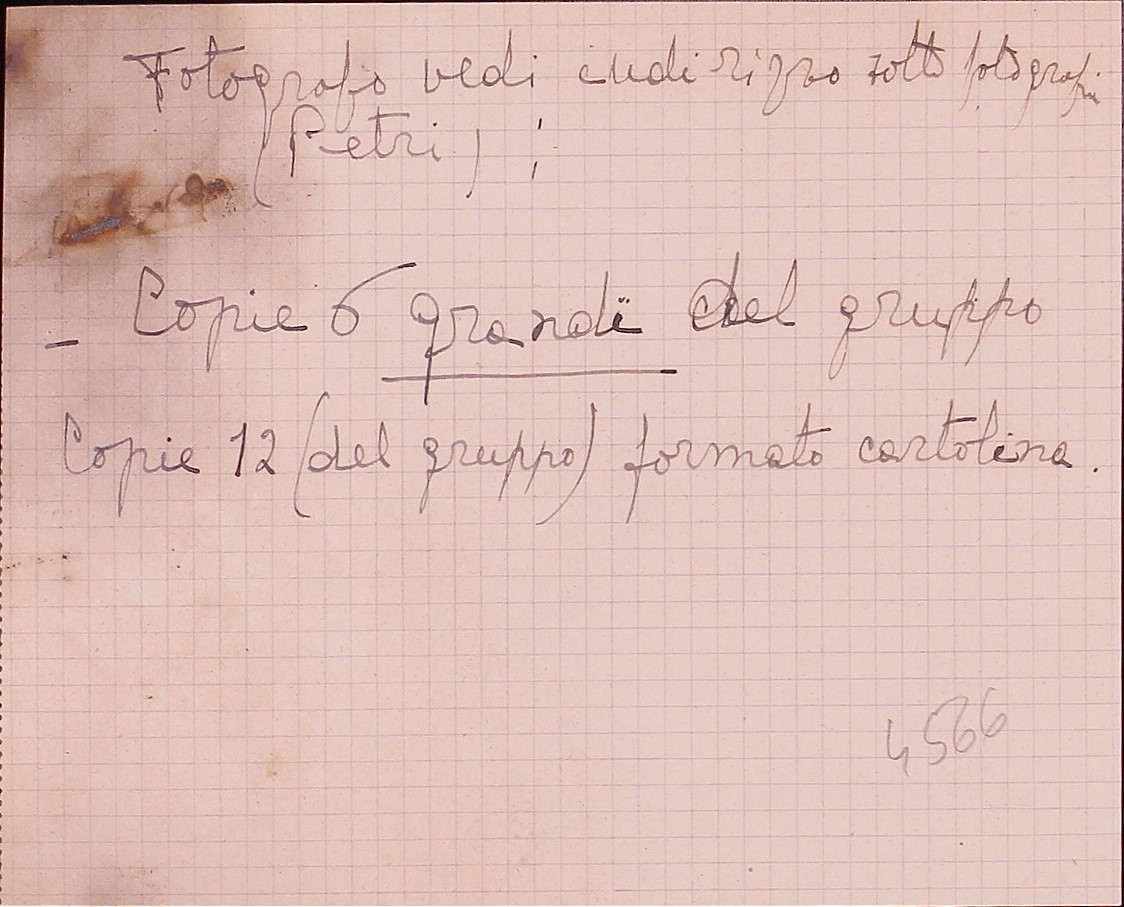 Fotografo vedi indirizzo sotto fotografie
(Petri) ;
- Copie 6 grandi del gruppo
Copie 12 (del gruppo) formato cartolina.
4566